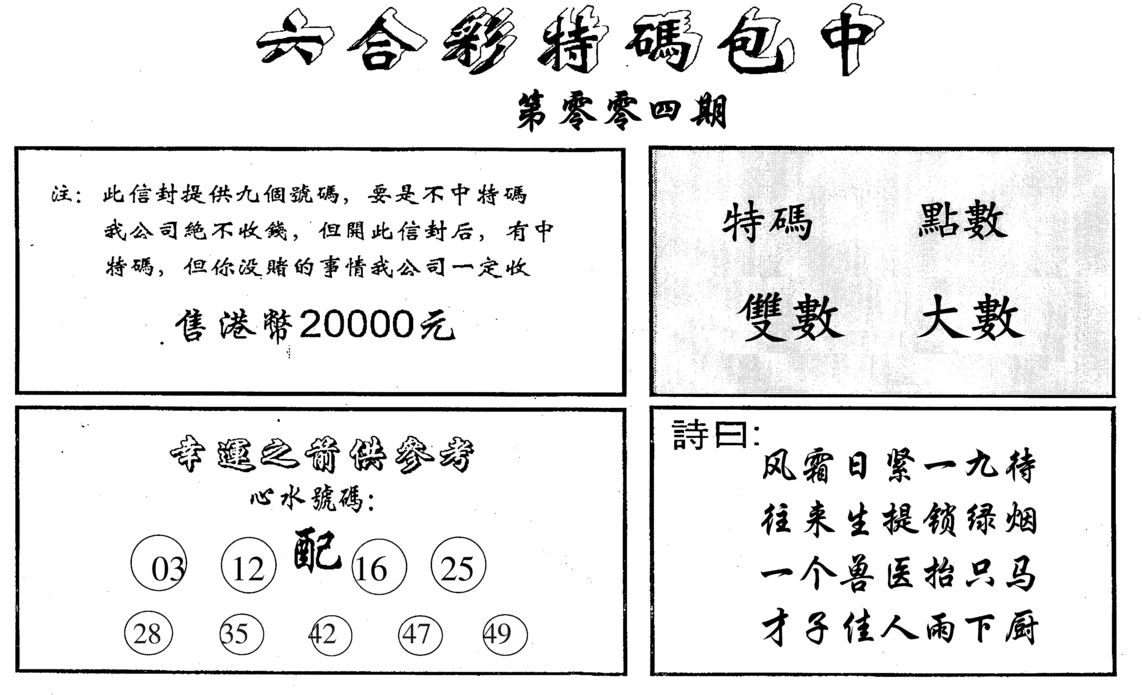 六合彩特碼包中
第零零四期
注：此信封提供九個號碼，要是不中特碼
我公司絶不收錢，但開此信封后，有中
特碼，但你没賭的事情我公司一定收
售港幣20000元
特碼 點數
雙數 大數
幸運之箭供參考
心水號碼：
03 12 配 16 25
28 35 42 47 49
詩曰：
风霜日紧一九待
往来生提锁绿烟
一个兽医抬只马
才子佳人雨下厨